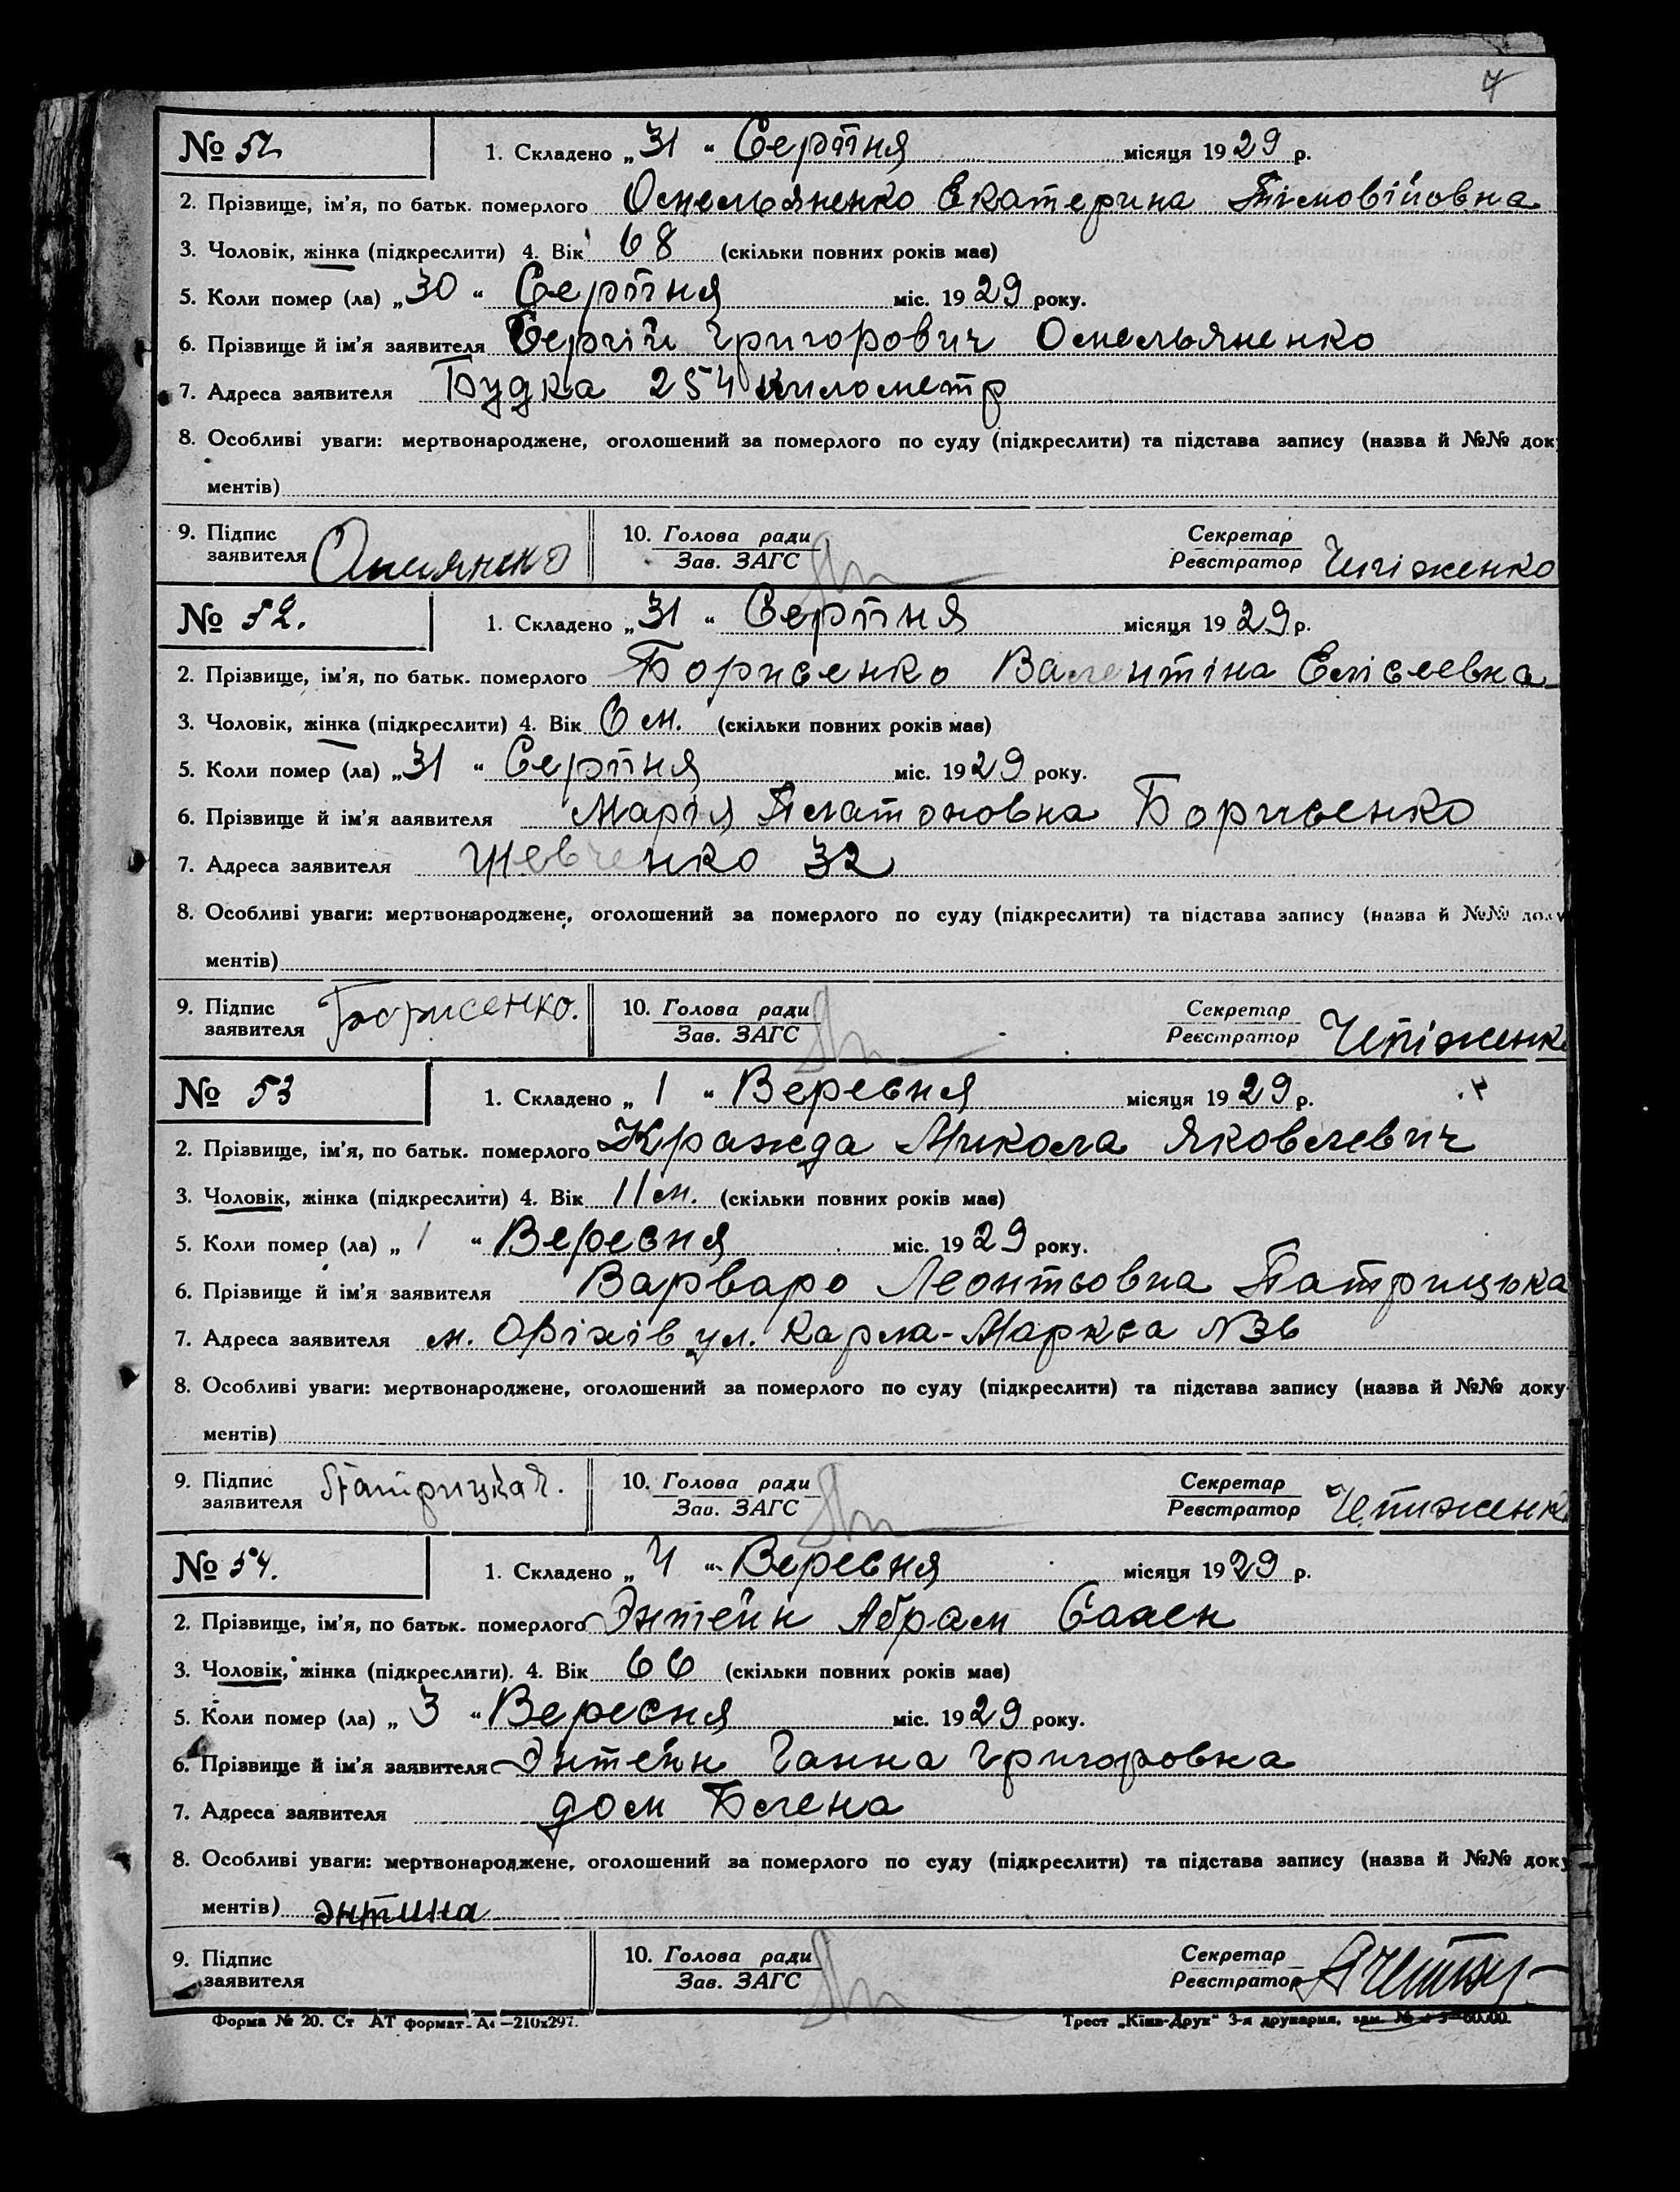 7
№ 51 1. Складено „31“ Серпня місяця 1929 р.
2. Прізвище, ім'я, по батьк. померлого Омельяненко Екатерина Тімовійовна
3. Чоловік, жінка (підкреслити) 4. Вік 68 (скільки повних років має)
5. Коли помер (ла) „30“ Серпня міс. 1929 року.
6. Прізвище й ім'я заявителя Сергій Григорович Омельяненко
7. Адреса заявителя Будка 254 километр
8. Особливі уваги: мертвонароджене, оголошений за померлого по суду (підкреслити) та підстава запису (назва й №№ доку
ментів)
9. Підпис заявителя 10. Голова ради Зав. ЗАГС Секретар Реєстратор Чепіженко
№ 52. 1. Складено „31“ Серпня місяця 1929 р.
2. Прізвище, ім'я, по батьк. померлого Борисенко Валентіна Елісеевна
3. Чоловік, жінка (підкреслити) 4. Вік 6 м. (скільки повних років має)
5. Коли помер (ла) „31“ Серпня міс. 1929 року.
6. Прізвище й ім'я ааявителя Марія Платоновна Борисенко
7. Адреса заявителя Шевченко 32
8. Особливі уваги: мертвонароджене, оголошений за померлого по суду (підкреслити) та підстава запису (назва й №№ доку
ментів)
9. Підпис заявителя Борисенко. 10. Голова ради Зав. ЗАГС Секретар Реєстратор Чепіженк
№ 53 1. Складено „1“ Вересня місяця 1929 р.
2. Прізвище, ім'я, по батьк. померлого Кражда Микола Яковлевич
3. Чоловік, жінка (підкреслити) 4. Вік 11 м. (скільки повних років має)
5. Коли помер (ла) „1“ Вересня міс. 1929 року.
6. Прізвище й ім'я заявителя Варваро Леонтьовна Патрицька
7. Адреса заявителя м. Оріхів ул. Карла-Маркса N36
8. Особливі уваги: мертвонароджене, оголошений за померлого по суду (підкреслити) та підстава запису (назва й №№ доку
ментів)
9. Підпис заявителя Патрицкая. 10. Голова ради Зав. ЗАГС Секретар Реєстратор Чепиженк
№ 54. 1. Складено „4“ Вересня місяця 1929 р.
2. Прізвище, ім'я, по батьк. померлого Энтейн Абрам
3. Чоловік, жінка (підкреслити). 4. Вік 66 (скільки повних років має)
5. Коли помер (ла) „3“ Вересня міс. 1929 року.
6. Прізвище й ім'я заявителя Энтейн Ганна Григоровна
7. Адреса заявителя дом Блена
8. Особливі уваги: мертвонароджене, оголошений за померлого по суду (підкреслити) та підстава запису (назва й №№ доку
ментів) энтина
9. Підпис заявителя 10. Голова ради Зав. ЗАГС Секретар Реєстратор
Форма № 20. Ст АТ формат. А4 —210x297. Трест „Київ-Друк“ 3-я друкарня, зам.